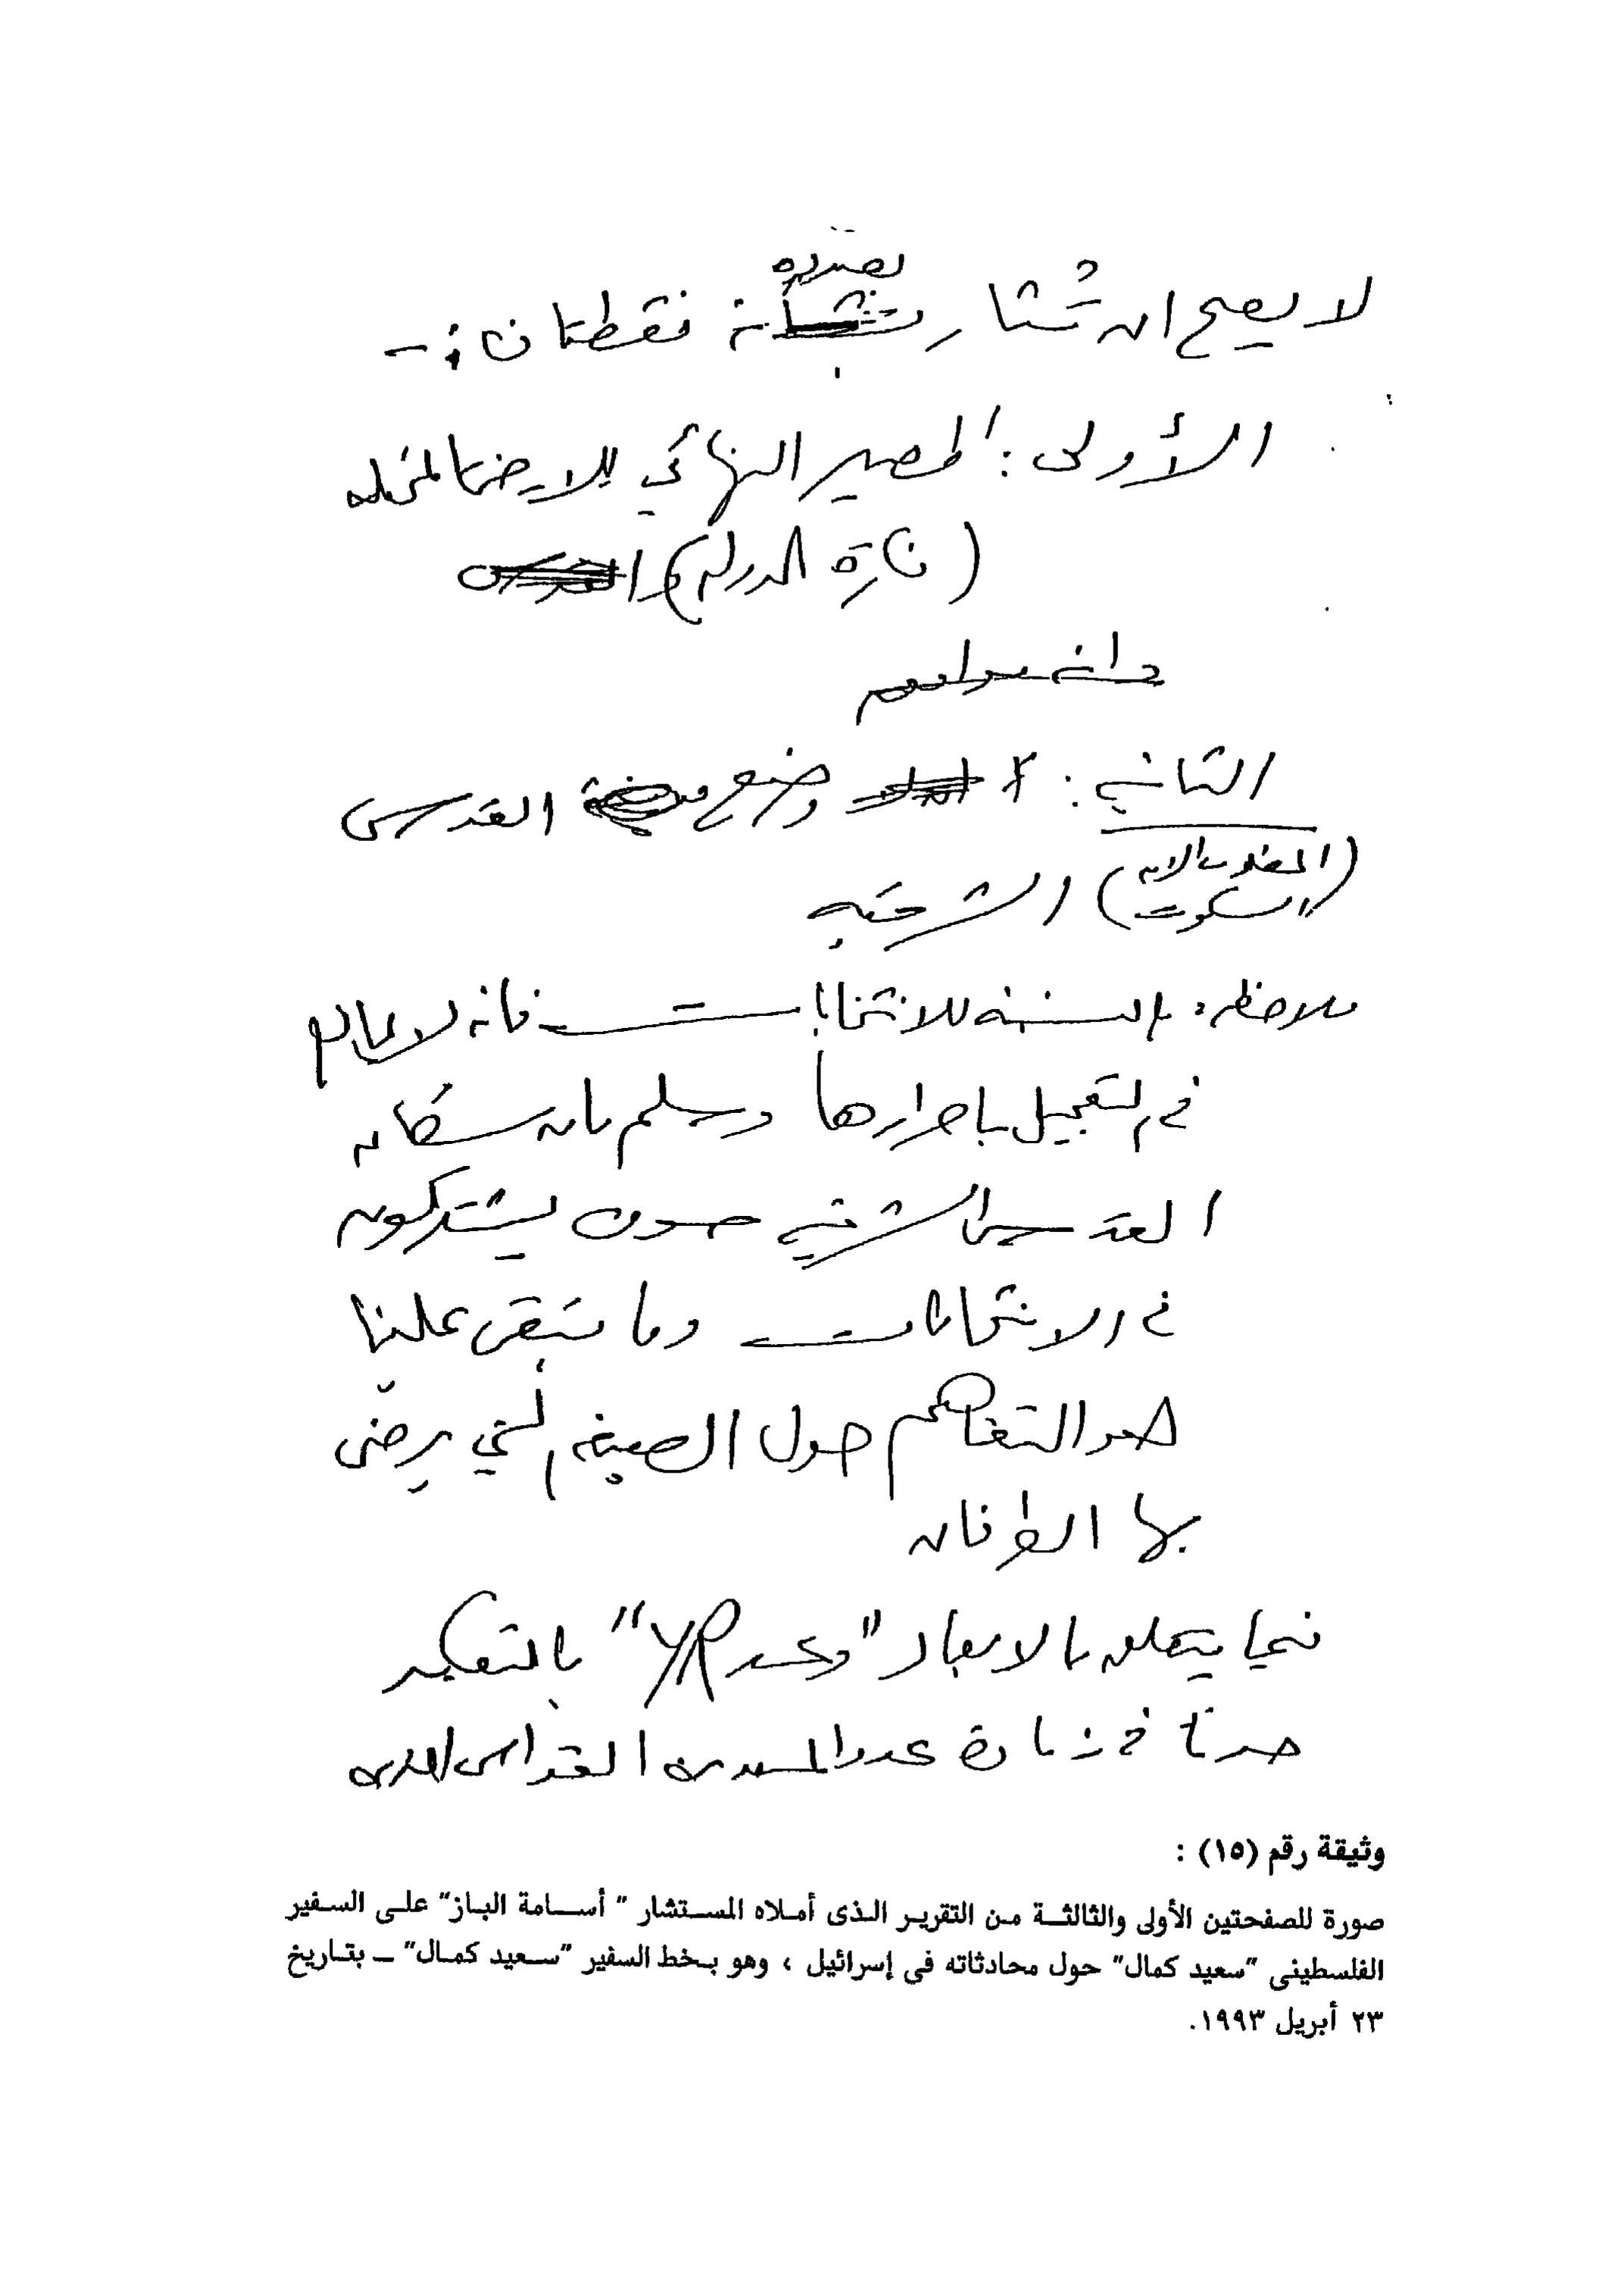 بصدده
لا يصح ان تُثار نقطتان :-
الأولى : المصير النهائي للارض المحتله
(فكرة الدوله) و
الثانيه : وضع القدس
(المطلوب الان السكوت) الشرقيه
ملاحظه : بالنسبه للانتخابات فانه لا يمانع
في التعجيل باجرائها ويسلم بان سكان
القدس الشرقيه سوف يشتركون
في الانتخابات وما تبقى علينا
هو التفاهم حول الصيغه التي يرضى
بها الطرفان
فيما يتعلق بالابعاد "وعد YR" بالتفكير
جديا في زيادة عدد المبعدين
وثيقة رقم (١٥) :
صورة للصفحتين الأولى والثالثة من التقرير الذى أملاه المستشار " أسامة الباز" على السفير
الفلسطينى "سعيد كمال" حول محادثاته فى إسرائيل ، وهو بخط السفير "سعيد كمال" ــ بتاريخ
٢٣ أبريل ١٩٩٣.